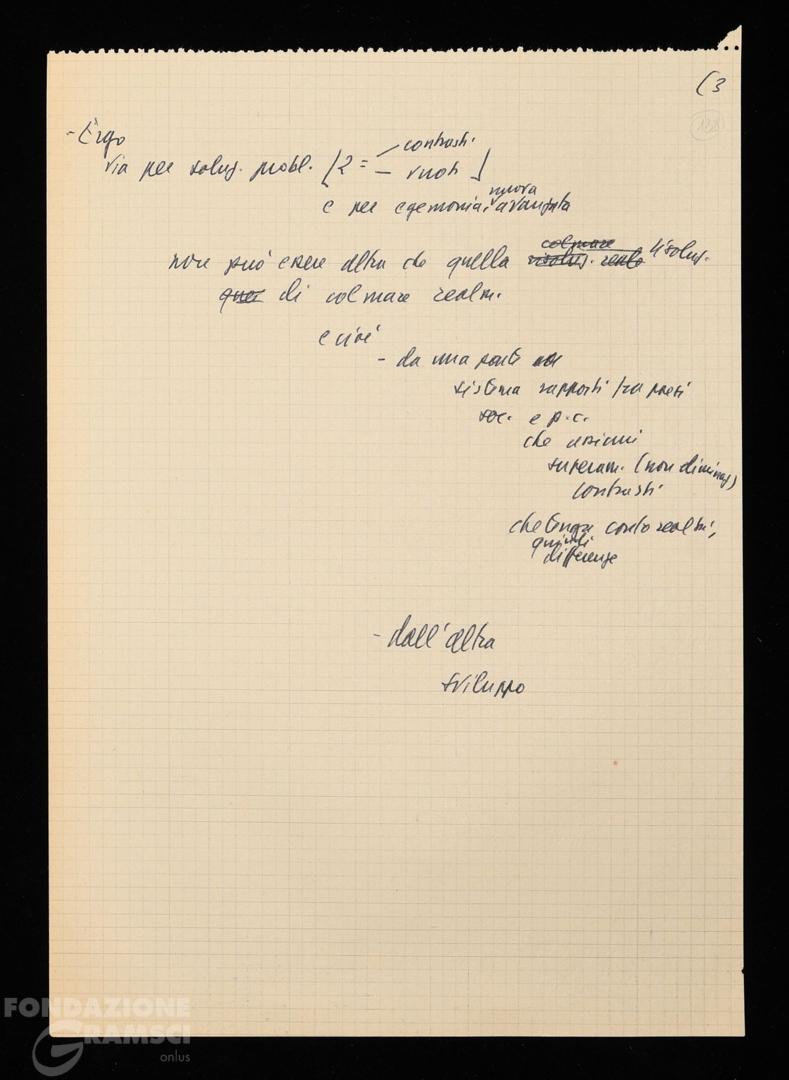 (3
138
- Ergo
via per soluz. probl. [2 = - contrasti
- vuoti]
e per egemonia nuova avanzata
non può essere altra che quella colmare risoluz. realm. risoluz.
quei di colmare realm.
e cioè
- da una parte
sistema rapporti tra paesi
soc. e p.c.
che assicuri
superam. (non diminuz)
contrasti
che tenga conto realtà,
quindi
differenze
- dall'altra
sviluppo
FONDAZIONE
GRAMSCI
onlus